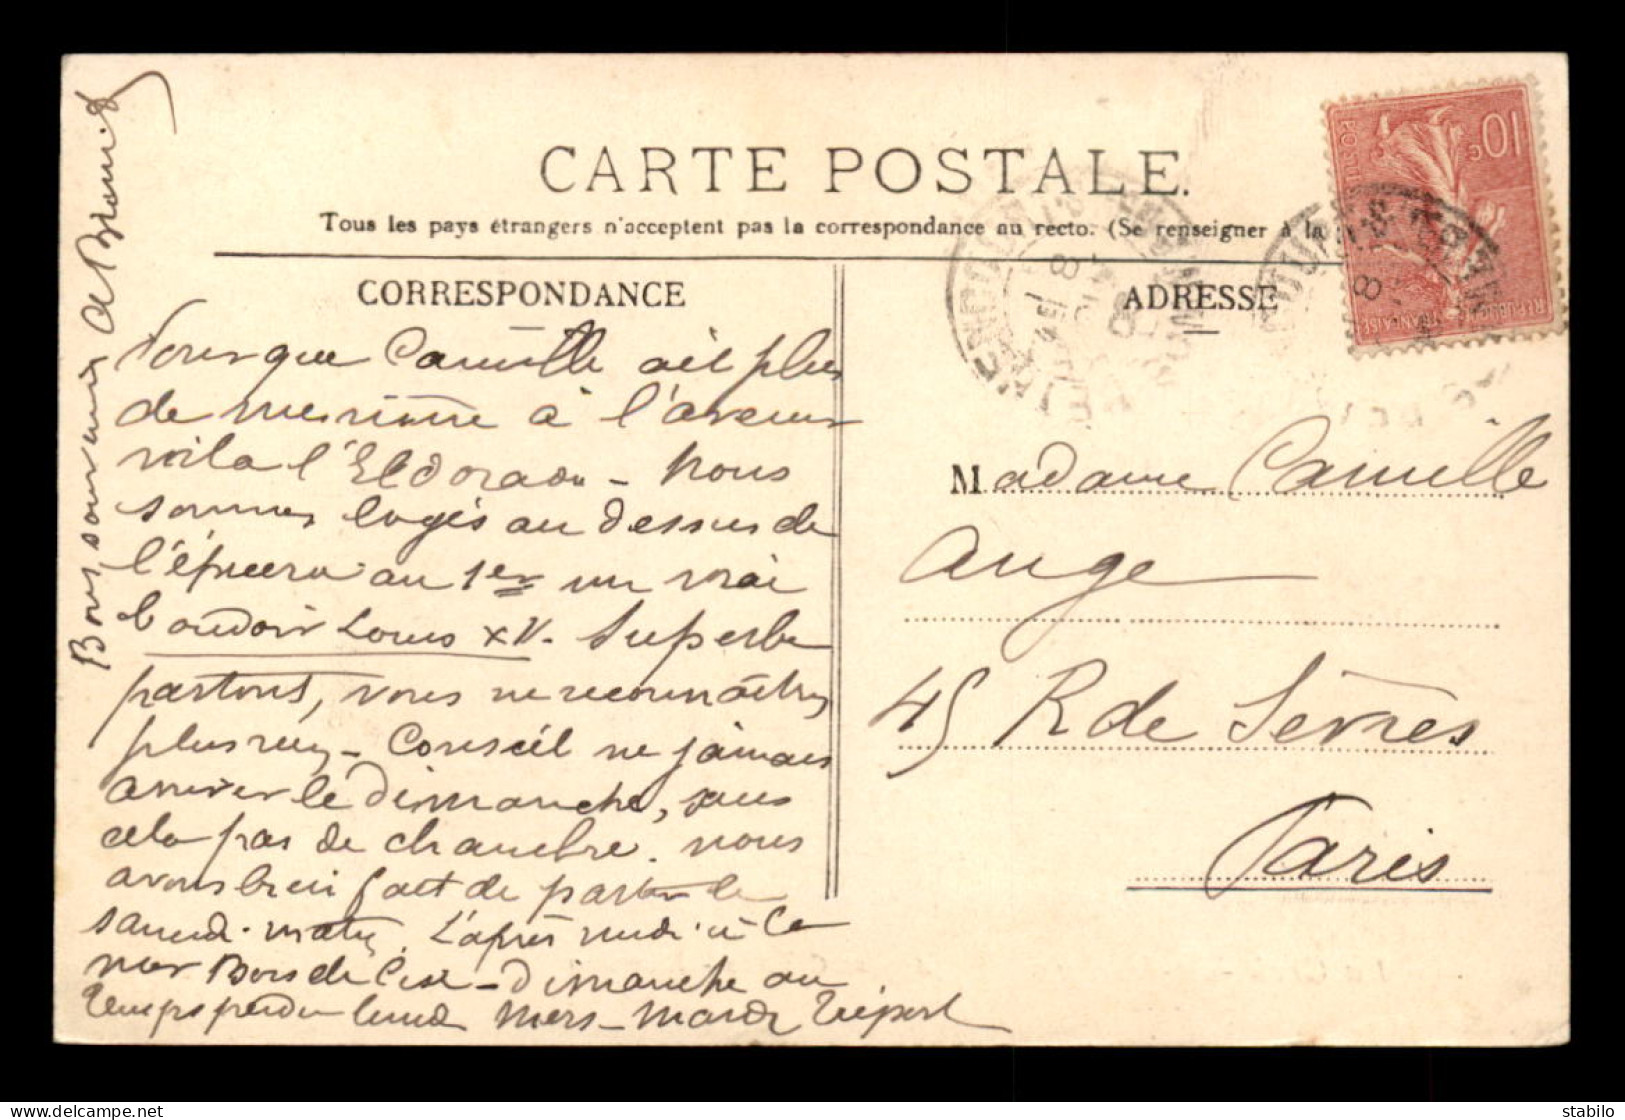 CARTE POSTALE.
Tous les pays étrangers n'acceptent pas la correspondance au recto. (Se renseigner à la
CORRESPONDANCE
ADRESSE
10c
POSTES
REPUBLIQUE FRANÇAISE
Pour que Camille ait plus
de mémoire à l'avenir
voila l'Eldorado - Nous
sommes logés au dessus de
l'épicerie au 1er un vrai
boudoir Louis XV. Superbe
partout, vous ne reconnaitrez
plus rien - Conseil ne jamais
arriver le Dimanche, sans
cela pas de chambre. nous
avons bien fait de partir le
samedi matin. L'après midi à la
mer Bois de Cise - Dimanche au
Temps perdu lundi Mers - Mardi Tréport
Bons souvenirs A
Madame Camille
Ange
45 R de Sèvres
Paris
stabilo